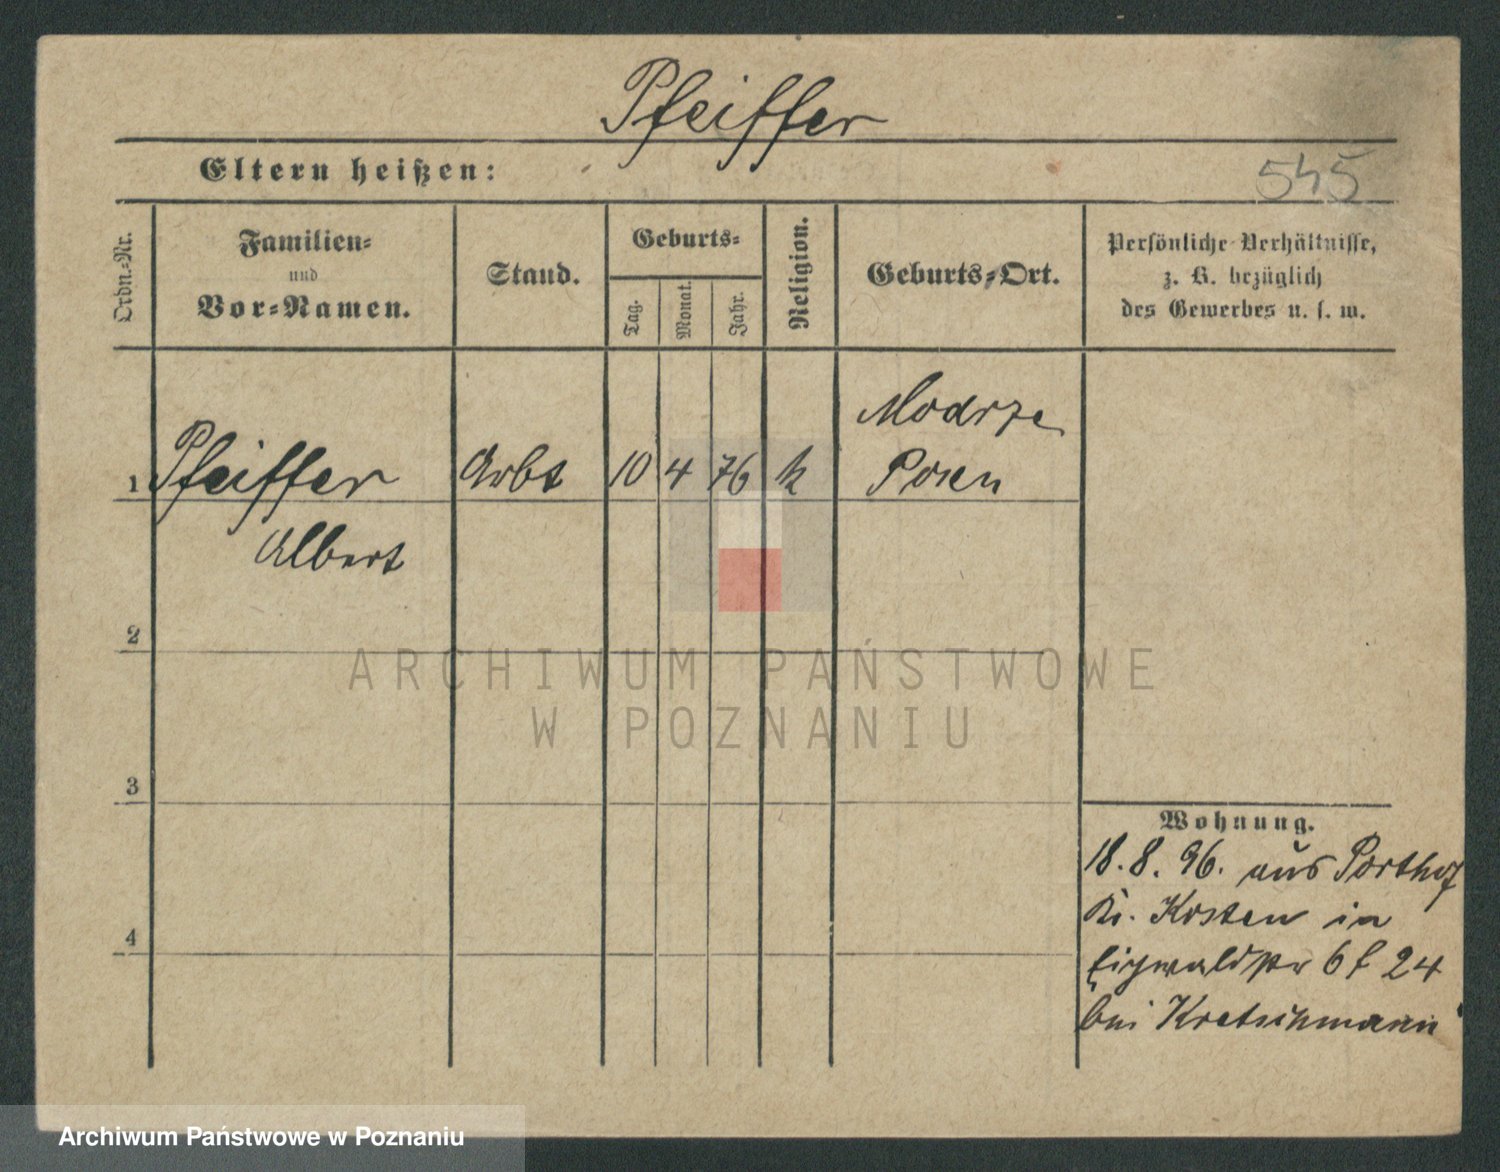 Pfeiffer
Eltern heißen:
545
Ordn.-Nr.
Familien-
und
Vor-Namen.
Stand.
Geburts-
Tag.
Monat.
Jahr.
Religion.
Geburts-Ort.
Persönliche Verhältnisse,
z. B. bezüglich
des Gewerbes u. s. w.
1 Pfeiffer Arbt 10 4 76 k Modrze
Posen
Albert
2
3
4
Wohnung.
18. 8. 96. aus Porthof
Kr. Kosten in
6 f 24
bei Kretschmann
ARCHIWUM PAŃSTWOWE
W POZNANIU
Archiwum Państwowe w Poznaniu